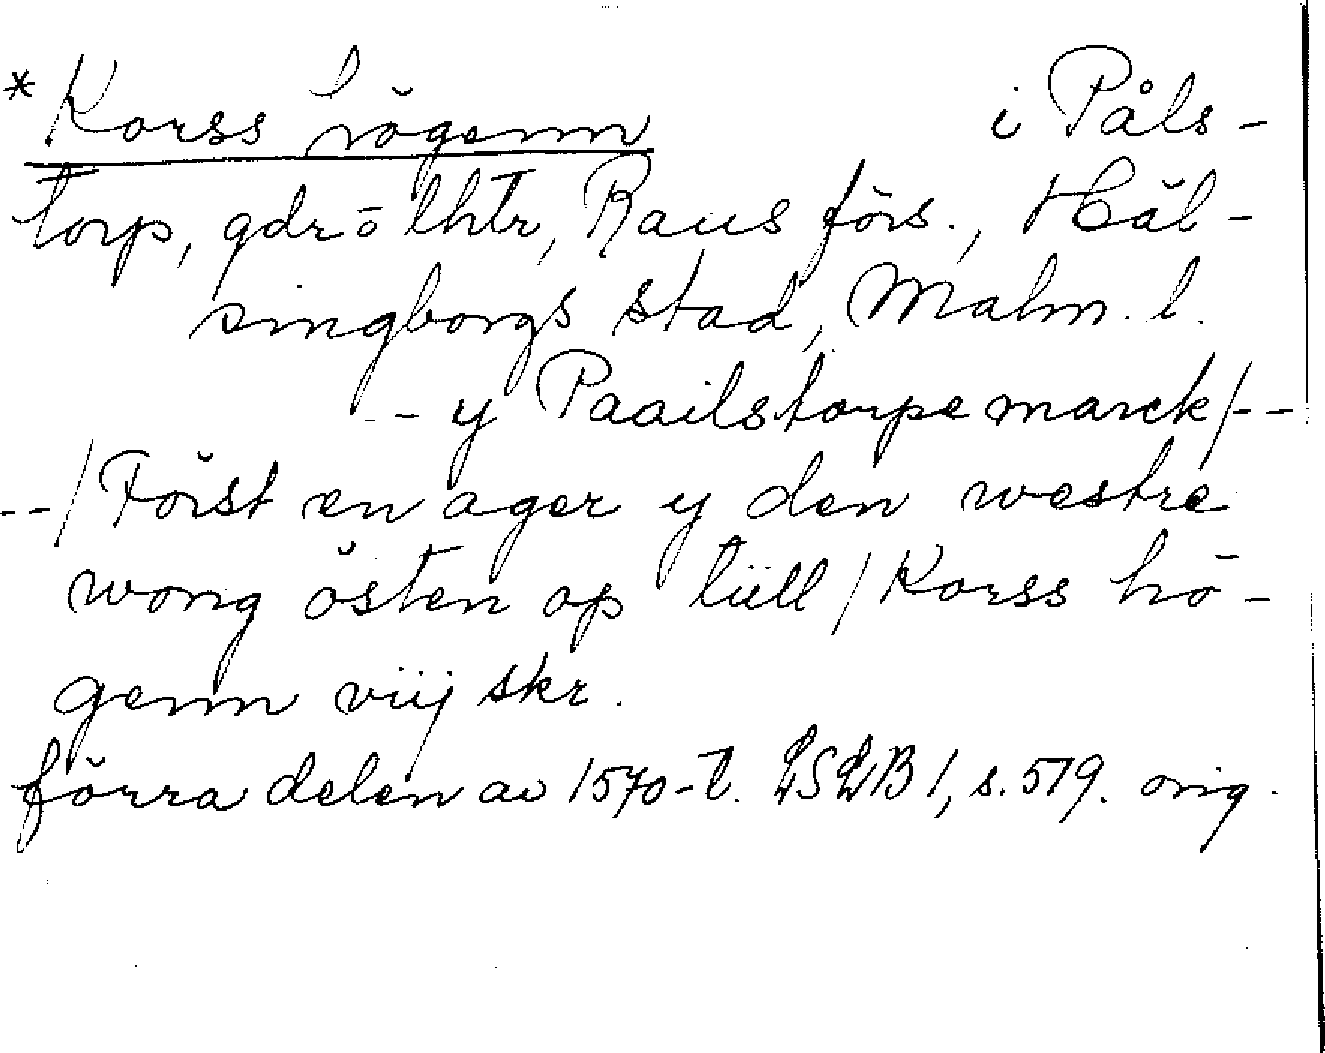 *Korss högenn i Påls-
torp, gdr o lhtr, Raus förs., Häl-
singborgs stad, Malm. l.
-- y Paailstorpe marck/--
--/Först en ager y den westre
wong östen op tiill/Korss hö-
genn viij skr.
förra delen av 1570-t. LSLB 1, s. 519. orig.